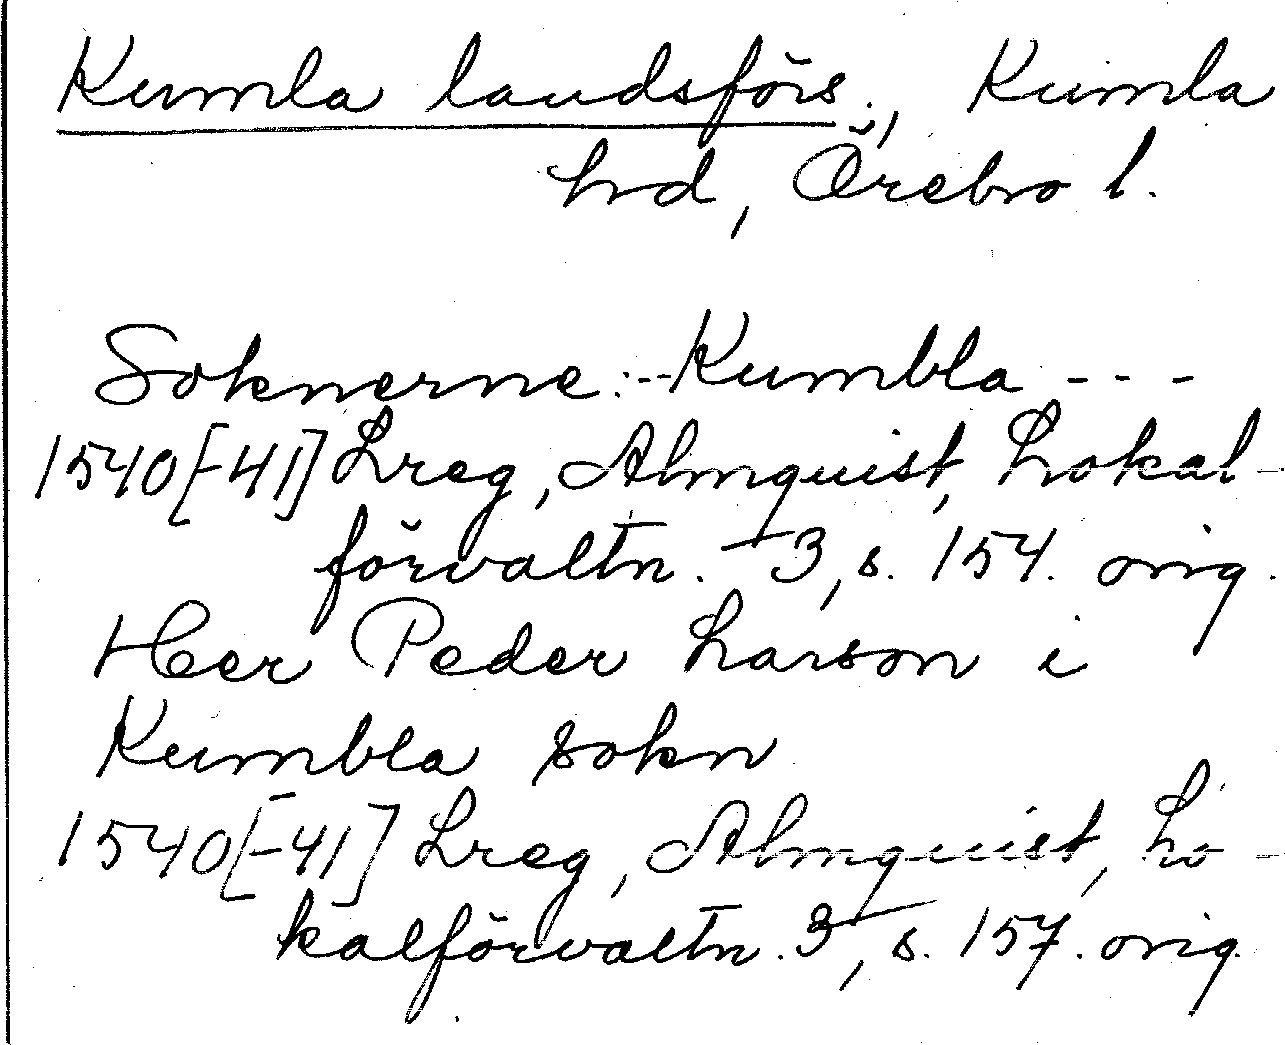 Kumla landsförs., Kumla
hrd, Örebro l.
Soknerne: -- Kumbla - - -
1540[-41] Lreg, Almquist, Lokal-
förvaltn. 3, s. 154. orig.
Her Peder Larson i
Kumbla sokn
1540[-41] Lreg, Almquist, Lo-
kalförvaltn. 3, s. 157. orig.